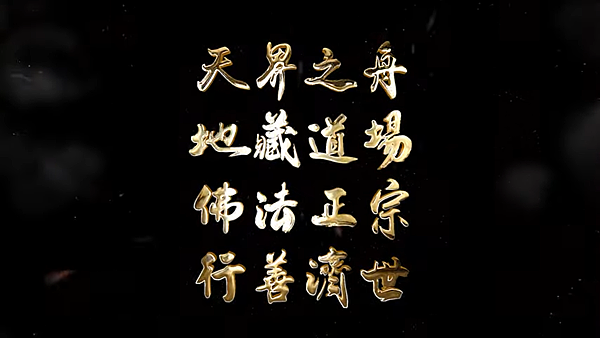 天界之舟
地藏道場
佛法正宗
行善濟世